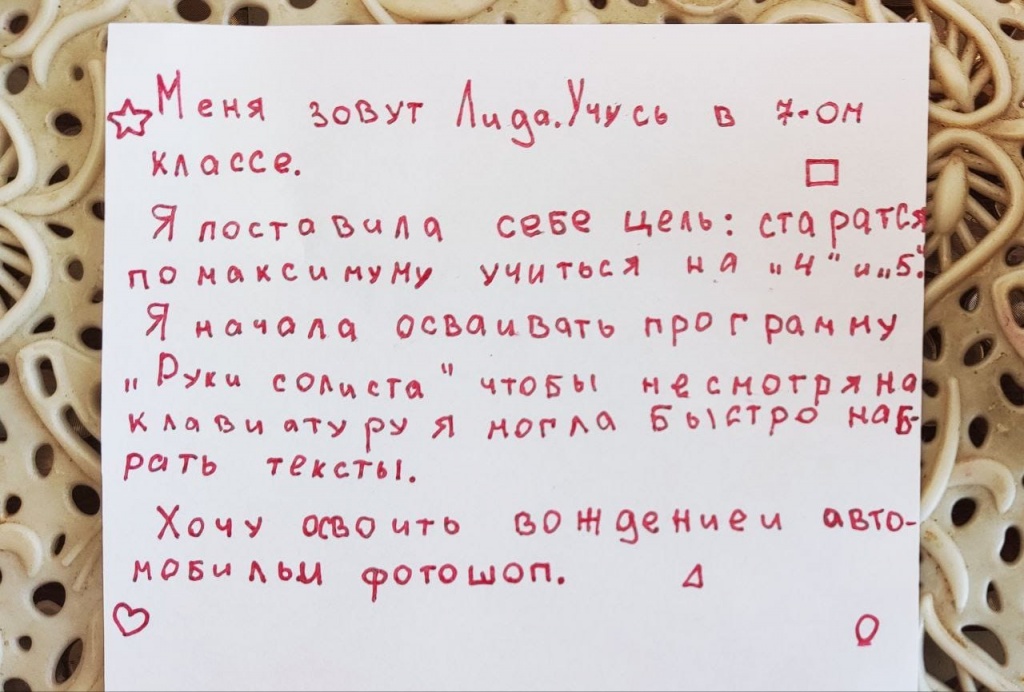 Меня зовут Лида. Учусь в 7-ом
классе.
Я поставила себе цель: старатся
по максимуму учиться на „4“ и „5“.
Я начала осваивать программу
„Руки солиста“ чтобы не смотря на
клавиатуру я могла быстро наб-
рать тексты.
Хочу освоить вождение и авто-
мобильм фотошоп.